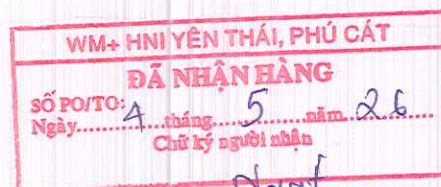 WM+ HNI YÊN THÁI, PHÚ CÁT
ĐÃ NHẬN HÀNG
SỐ PO/TO:
Ngày......4...tháng....5......năm..26....
Chữ ký người nhận